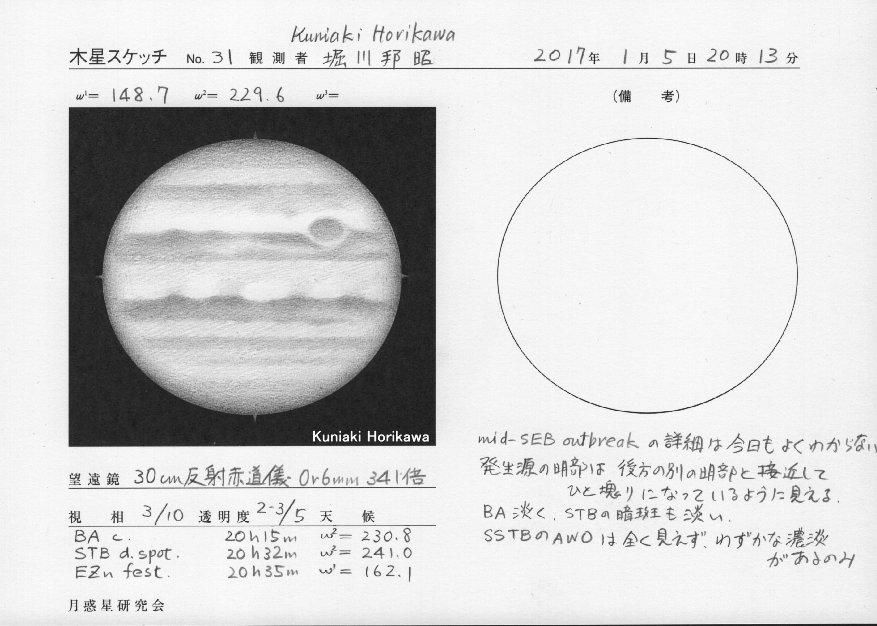 Kuniaki Horikawa
木星スケッチ No. 31 観測者 堀川邦昭 2017年 1月 5日 20時 13分
ω¹= 148.7 ω²= 229.6 ω³=
(備 考)
Kuniaki Horikawa
mid-SEB outbreak の詳細は今日もよくわからない
発生源の明部は 後方の別の明部と接近して
ひと塊りになっているように見える.
BA 淡く、STBの暗斑も淡い.
SSTBのAWOは全く見えず、わずかな濃淡
があるのみ
望遠鏡 30cm反射赤道儀 Or6mm 341倍
視 相 3/10 透明度 2-3/5 天 候
BA c. 20h15m ω²= 230.8
STB d.spot. 20h32m ω²= 241.0
EZn fest. 20h35m ω¹= 162.1
月惑星研究会